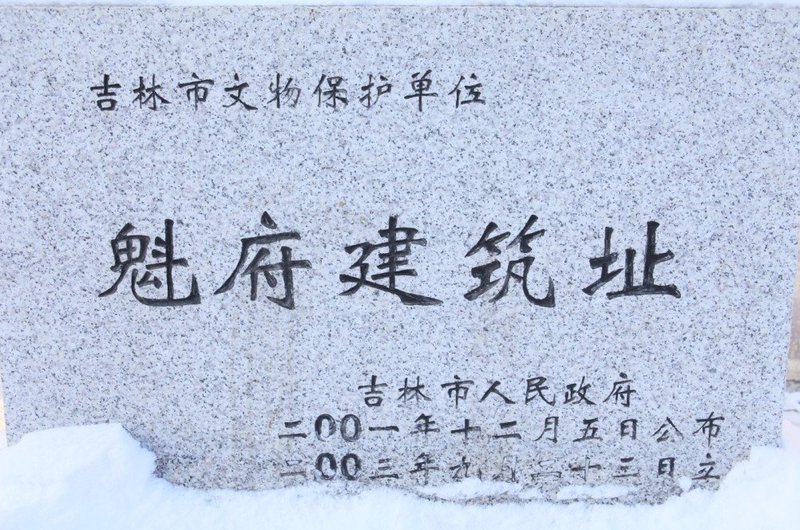 吉林市文物保护单位
魁府建筑址
吉林市人民政府
二00一年十二月五日公布
二00三年九月二十三日立